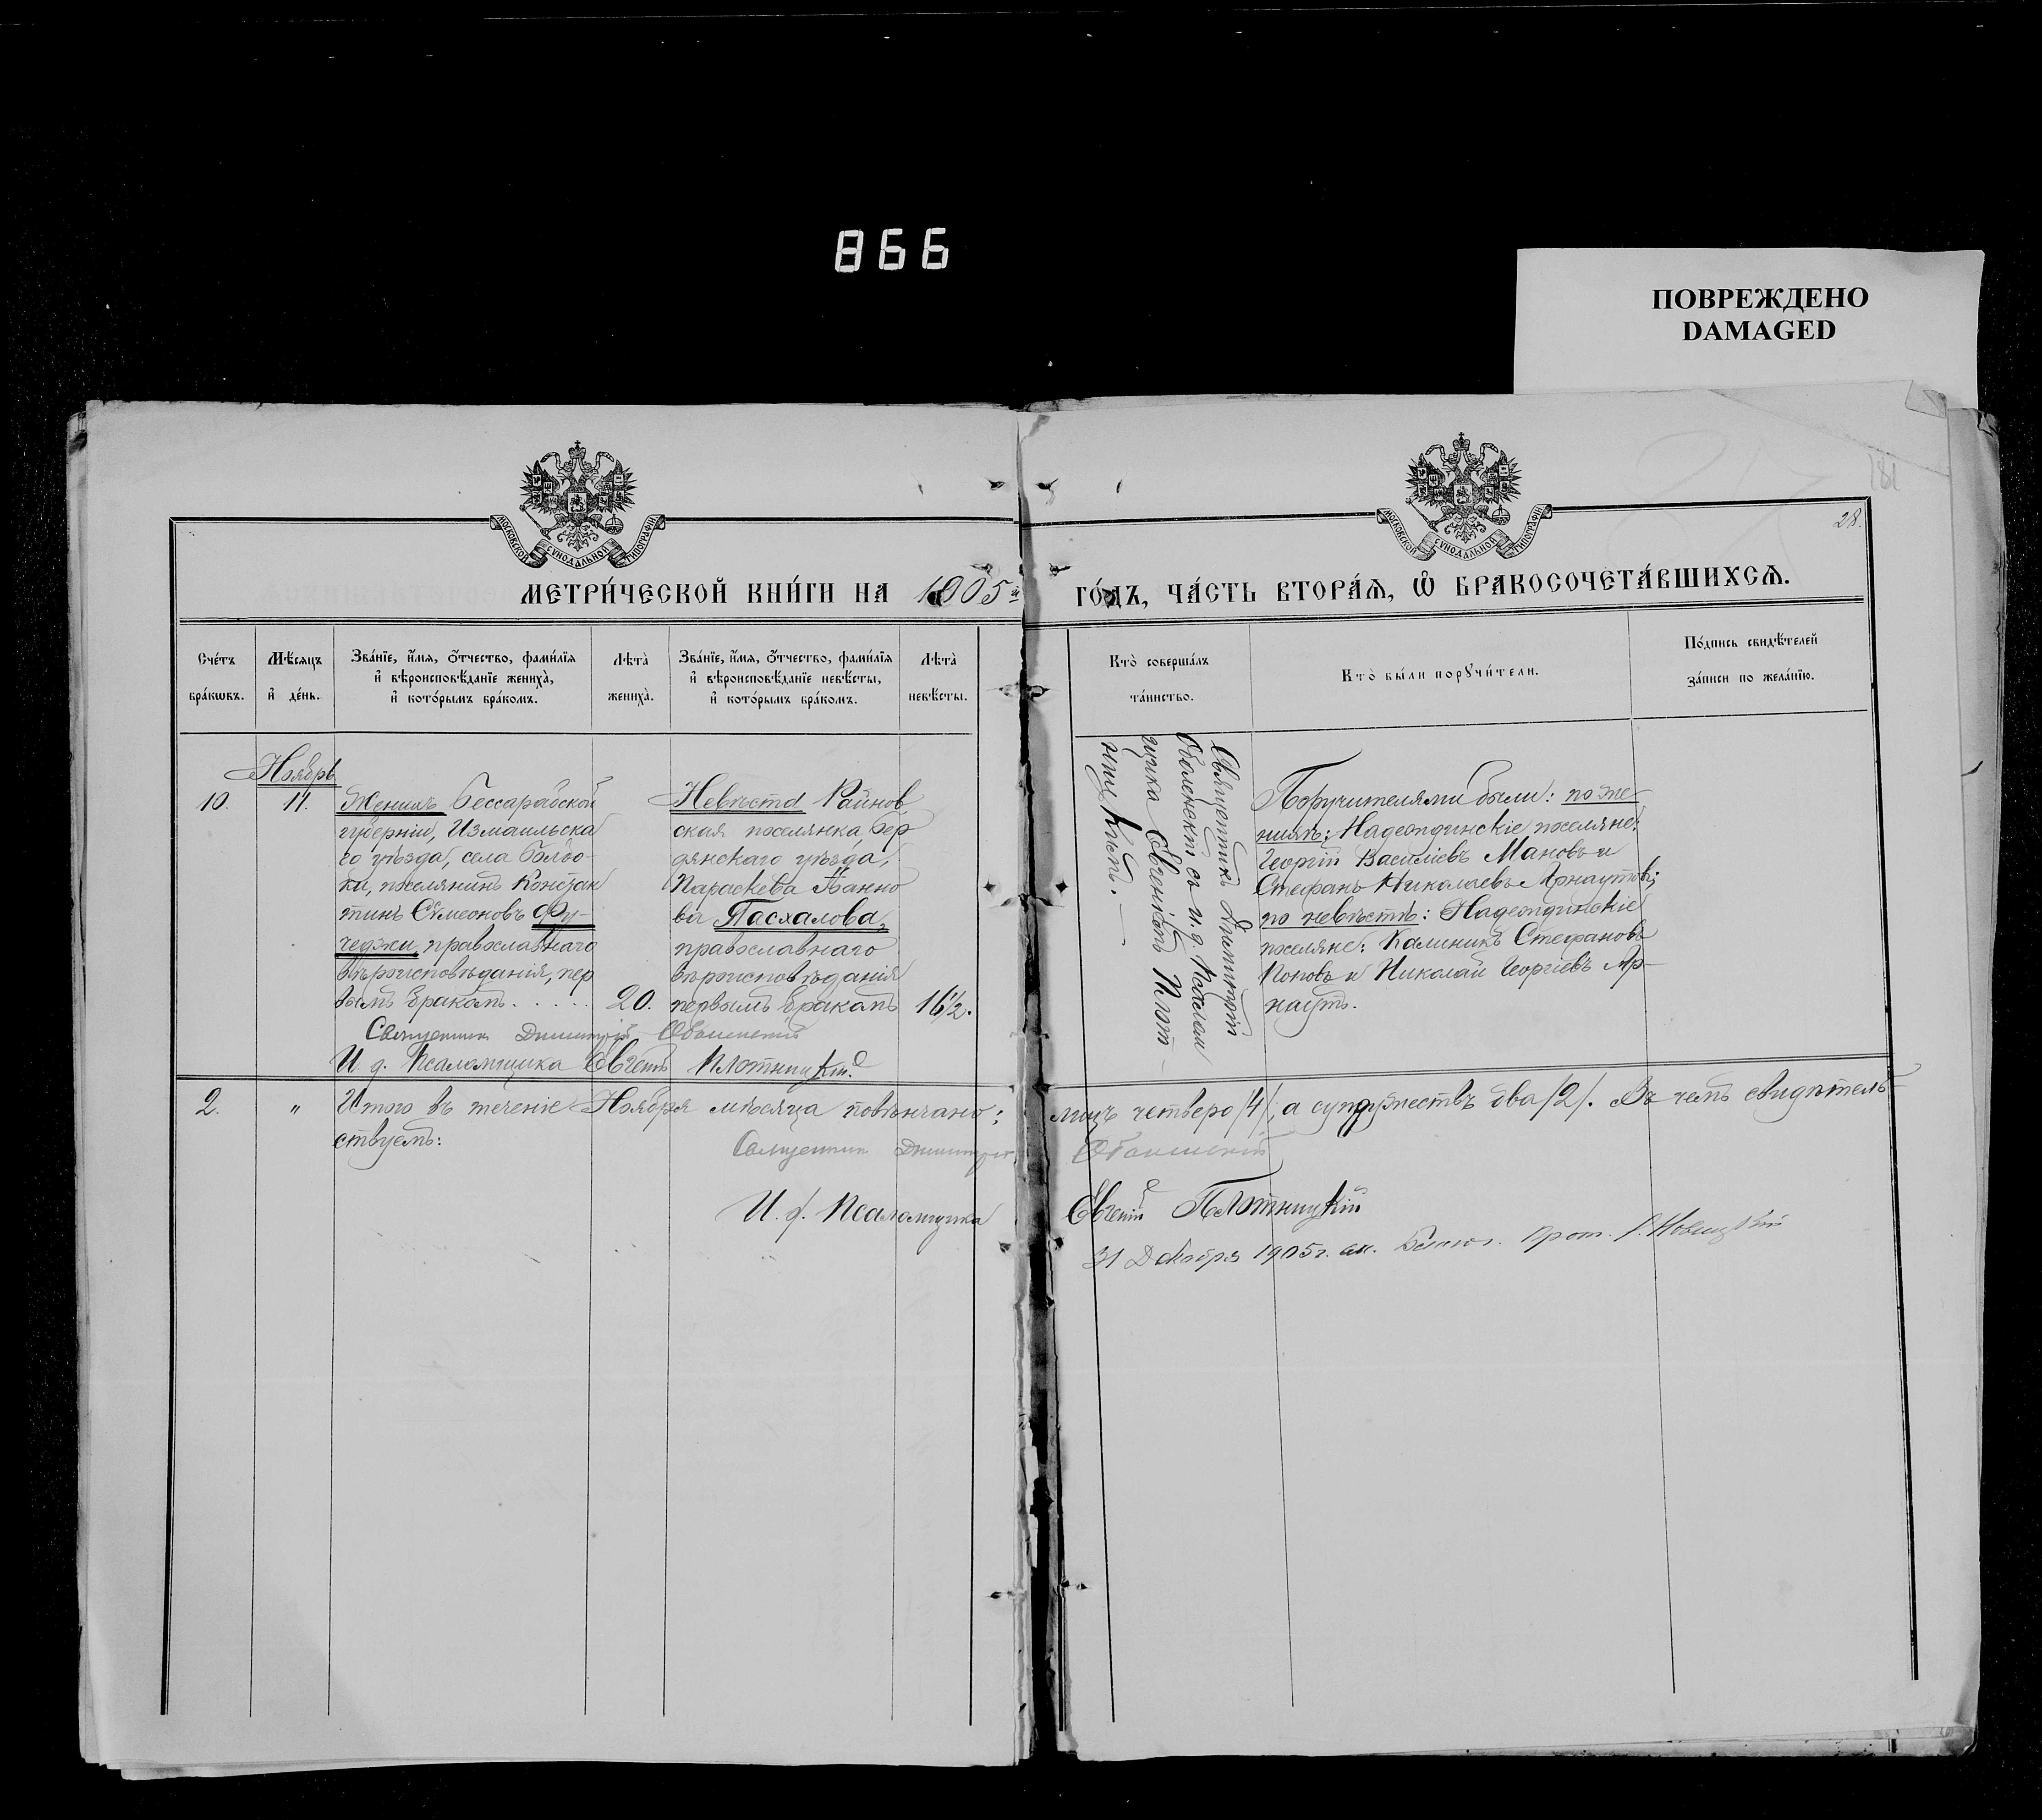 866
ПОВРЕЖДЕНО
DAMAGED
181
28.
МОСКОВСКОЙ СѴНОДАЛЬНОЙ ТИПОГРАФІИ
МОСКОВСКОЙ СѴНОДАЛЬНОЙ ТИПОГРАФІИ
МЕТРИ́ЧЕСКОЙ КНИ́ГИ НА 1905й ГО́ДЪ, ЧА́СТЬ ВТОРА́Ѧ, Ѡ҆ БРАКОСОЧЕТА́ВШИХСѦ.
Сче́тъ бра́кѡвъ.
Мѣ́сяцъ и҆ де́нь.
Зва́нїе, и҆́мя, ѻ҆́тчество, фами́лїя и҆ вѣроисповѣ́данїе жениха̀, и҆ кото́рымъ бра́комъ.
Лѣта̀ жениха̀.
Зва́нїе, и҆́мя, ѻ҆́тчество, фами́лїя и҆ вѣроисповѣ́данїе невѣ́сты, и҆ кото́рымъ бра́комъ.
Лѣта̀ невѣ́сты.
Кто̀ соверша́лъ та́инство.
Кто̀ бы́ли порꙋчи́тели.
По́дпись свидѣ́телей за́писи по жела́нїю.
Ноябрь
10.
11.
Женихъ Бессарабской
губерніи, Измаильска
го уѣзда, села Болбо-
ки, поселянинъ Констан
тинъ Сѵмеоновъ Фу-
чеджи, православнаго
вѣроисповѣданія, пер
вымъ бракомъ . . . . .
20.
Невѣста Райнов
ская поселянка, Бер
дянскаго уѣзда,
Параскева Панно
ва Пасхалова,
православнаго
вѣроисповѣданія
первымъ бракомъ
16½.
Священникъ Димитрій
Оболенскій съ и. д. Псалом
щика Евгеніемъ Плот
ницкимъ. —
Поручителями были: по же
нихѣ: Надеждинскіе поселяне:
Георгій Василіевъ Мановъ и
Стефанъ Николаевъ Арнаутовъ;
по невѣстѣ: Надеждинскіе
поселяне: Калиникъ Стефановъ
Поповъ и Николай Георгіевъ Ар-
наутъ.
Священникъ Димитрій Оболенскій
И. д. Псаломщика Евгеній Плотницкій
2. " Итого въ теченіе Ноября мѣсяца повѣнчано: лицъ четверо /4/, а супружествъ два /2/. Въ чемъ свидѣтель-
ствуемъ:
Священникъ Димитрій Оболенскій
И. д. Псаломщика Евгеній Плотницкій
31 Декабря 1905 г. Благоч. Прот. Новицкій